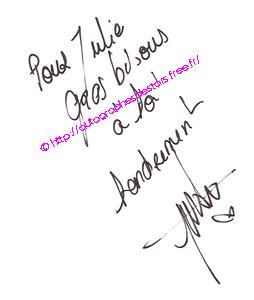 Pour Julie
gros bisous
a toi
tendrement
© http://autographesdestars.free.fr/